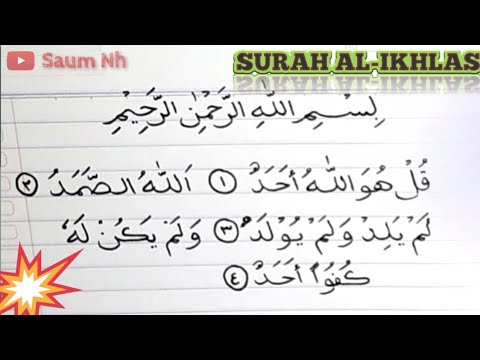 Saum Nh
SURAH AL-IKHLAS
بِسْمِ اللّٰهِ الرَّحْمٰنِ الرَّحِيْمِ
قُلْ هُوَ اللّٰهُ أَحَدٌ ١ اَللّٰهُ الصَّمَدُ ٢
لَمْ يَلِدْ وَلَمْ يُوْلَدْ ٣ وَلَمْ يَكُنْ لَهٗ
كُفُوًا أَحَدٌ ٤